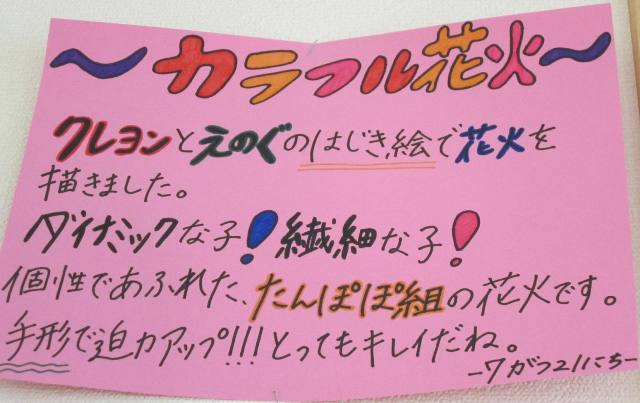 ～カラフル花火～
クレヨンとえのぐのはじき絵で花火を
描きました。
ダイナミックな子!繊細な子!
個性であふれた、たんぽぽ組の花火です。
手形で迫力アップ!!!とってもキレイだね。
－7がつ21にち－